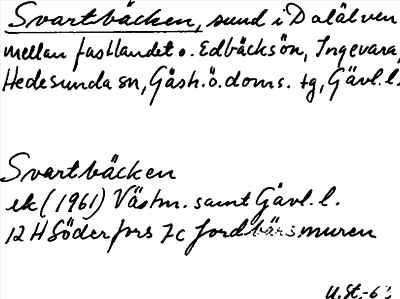 Svartbäcken, sund i Dalälven
mellan fastlandet o. Edbäcksön, Ingevara,
Hedesunda sn, Gästr. ö. doms. tg, Gävl. l.
Svartbäcken
ek (1961) Västm. samt Gävl. l.
12 H Söderfors 7c Jordbärsmuren
U.St.-63